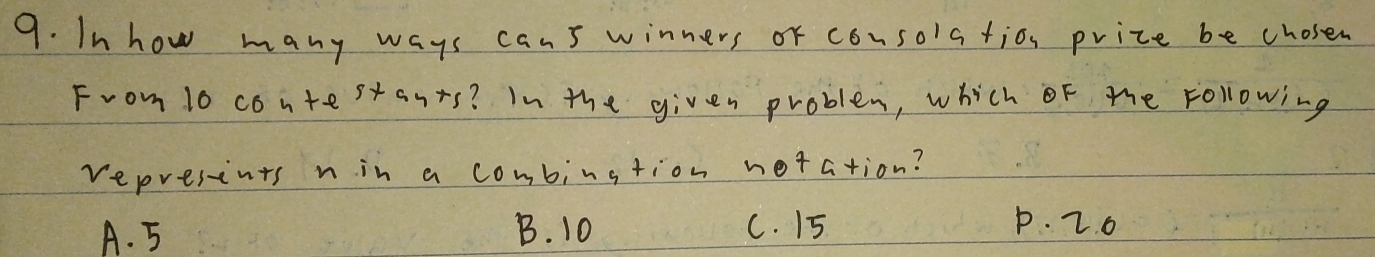 9. In how many ways can 5 winners of consolation prize be chosen
From 10 contestants? In the given problem, which of the following
represents n in a combination notation?
A. 5 B. 10 C. 15 D. 20